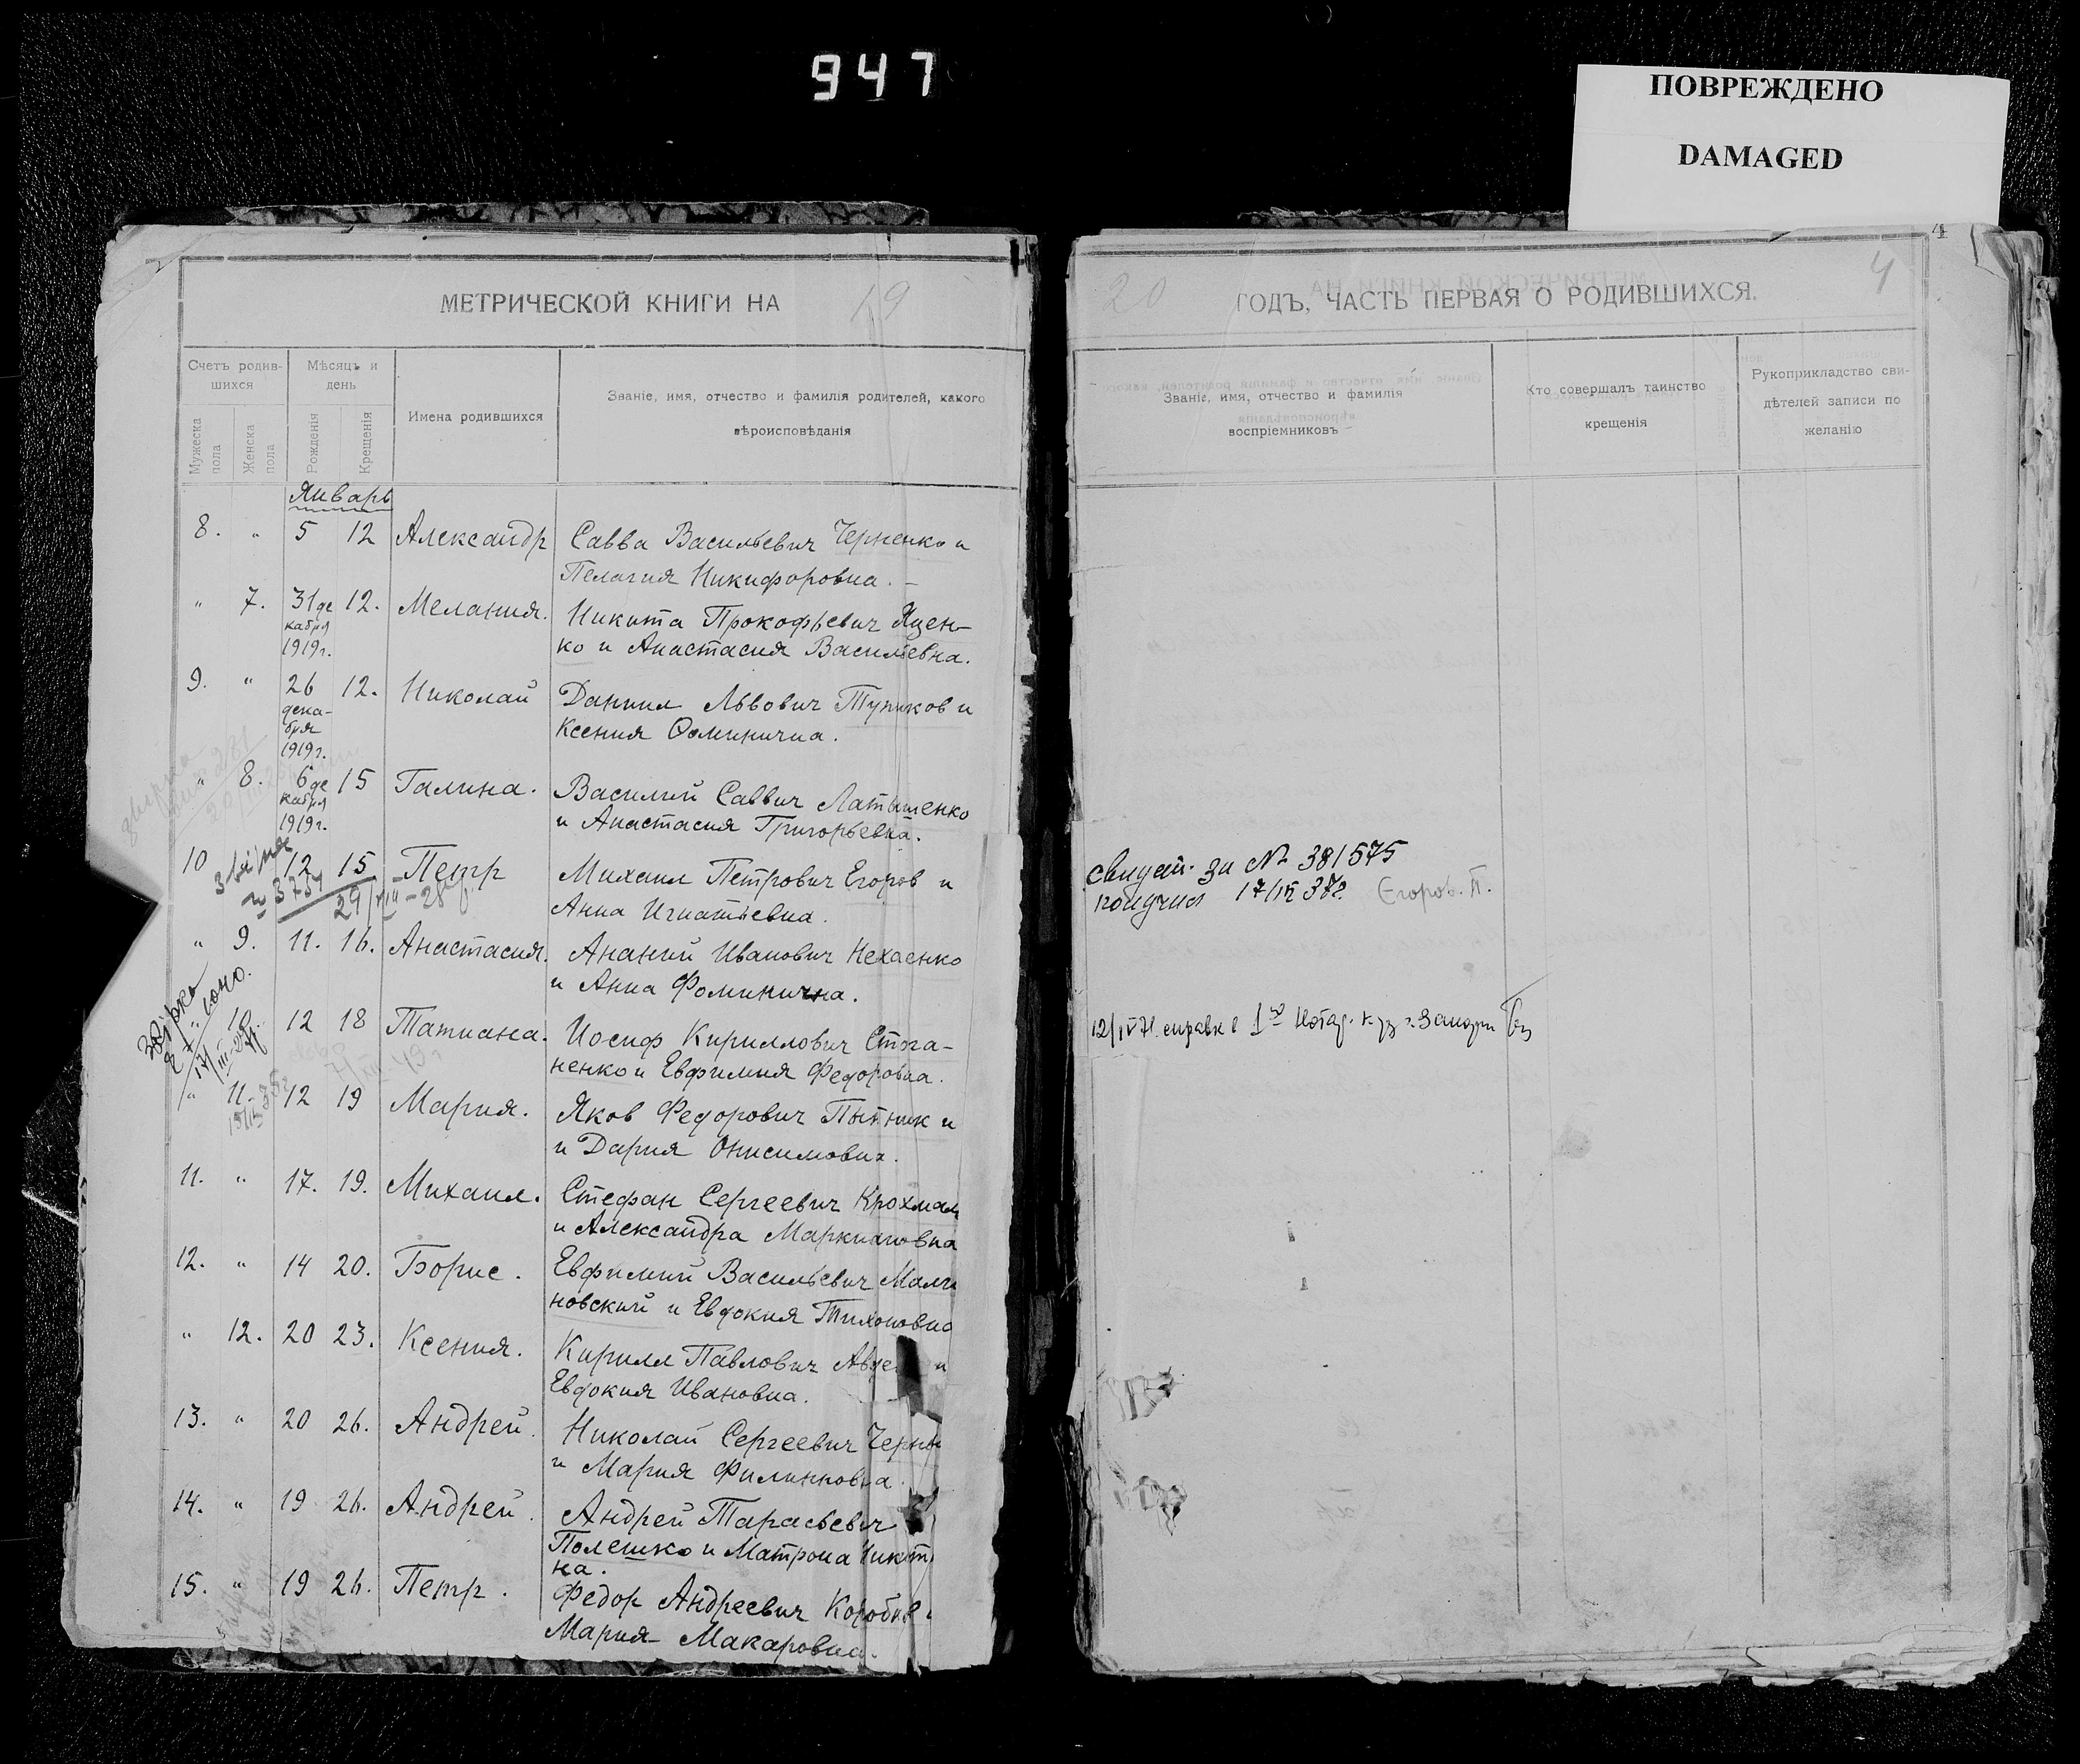 947
ПОВРЕЖДЕНО
DAMAGED
МЕТРИЧЕСКОЙ КНИГИ НА 19
20 ГОДЪ, ЧАСТЬ ПЕРВАЯ О РОДИВШИХСЯ.
4
4
Счетъ родив-
шихся
Мужеска
пола
Женска
пола
Мѣсяцъ и
день
Рожденія
Крещенія
Имена родившихся
Званіе, имя, отчество и фамилія родителей, какого
вѣроисповѣданія
Званіе, имя, отчество и фамилія
воспріемниковъ
Кто совершалъ таинство
крещенія
Рукоприкладство сви-
дѣтелей записи по
желанію
Январь
8. " 5 12 Александр Савва Васильевич Черненко и
Пелагия Никифоровна. -
" 7. 31 де 12. Мелания. Никита Прокофьевич Яцен-
кабря
1919 г. ко и Анастасия Васильевна.
9. " 26 12. Николай Даниил Львович Тупиков и
дека-
бря Ксения Фоминична.
1919 г.
" 8. 6 де 15 Галина. Василий Саввич Латышенко
кабря
1919 г. и Анастасия Григорьевна.
10 12 15 Петр Михаил Петрович Егоров и
Анна Игнатьевна.
3757
29/VIII-28 р
" 9. 11. 16. Анастасия. Ананий Иванович Нехаенко
и Анна Фоминична.
" 10. 12 18 Татиана. Иосиф Кириллович Стога-
ненко и Евфимия Федоровна.
" 11. 12 19 Мария. Яков Федорович Пытник и
и Дария Онисимовна.
11. " 17. 19. Михаил. Стефан Сергеевич Крохмаль
и Александра Маркиановна
12. " 14 20. Борис. Евфимий Васильевич Мали
новский и Евдокия Тихоновна
" 12. 20 23. Ксения. Кирилл Павлович Авде и
Евдокия Ивановна.
13. " 20 26. Андрей. Николай Сергеевич Черны
и Мария Филипповна.
14. " 19 26. Андрей. Андрей Тарасьевич
Полешко и Матрона Никит
на.
15. " 19 26. Петр. Федор Андреевич
Мария Макаровна.
свидет. за № 381575
получил 17/IX 37г. Егоров. П.
12/IV 71. справка 1